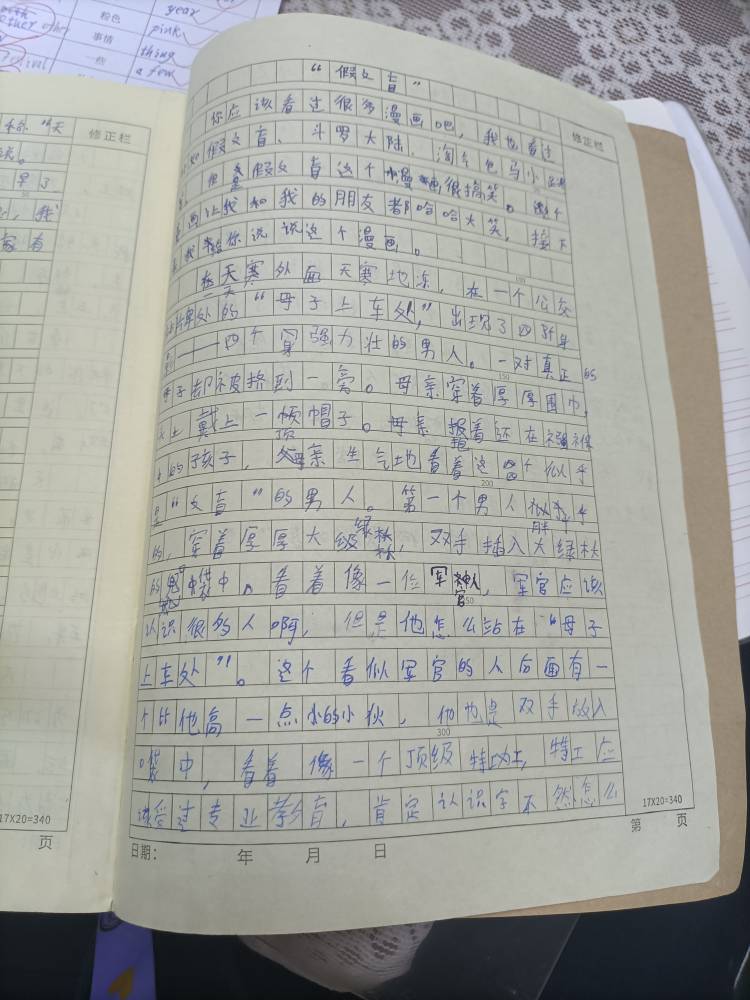 year
粉色
pink
事情
thing
一些
a few
修正栏
早了
17X20=340
页
“假文盲”
修正栏
你应该看过很多漫画吧，我也看过
如假文盲、斗罗大陆、淘气包马小
但是假文盲这个漫画很搞笑。这个
画让我和我的朋友都哈哈大笑，接下
我给你说说这个漫画。
100
在天寒外面天寒地冻，在一个公交
一天
牌处的“母子上车处，”出现了四个身
——四个身强力壮的男人。一对真正的
150
母子却被挤到一旁。母亲穿着厚厚围巾，
头上戴上一顶帽子。母亲抱着还在襁褓
的孩子，母亲生气地看着这四个似乎
200
是“文盲”的男人。第一个男人似乎
胖的，穿着厚厚大绿袄，双手插入大绿袄
的兜中。看着像一位军官，军官应该
250
认识很多人啊，但是他怎么站在“母子
上车处”。这个看似军官的人后面有一
个比他高一点小的小伙，他也是双手放入
300
口袋中，看着像一个顶级特工，特工应
该受过专业教育，肯定认识字不然怎么
17X20=340
日期： 年 月 日
第 页